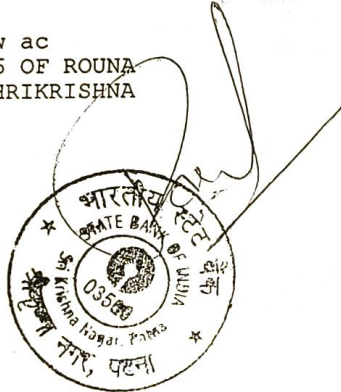 w ac
5 OF ROUNA
HRIKRISHNA
भारतीय स्टेट बैंक
STATE BANK OF INDIA
03560
Sri Krishna Nagar, Patna
नगर, पटना